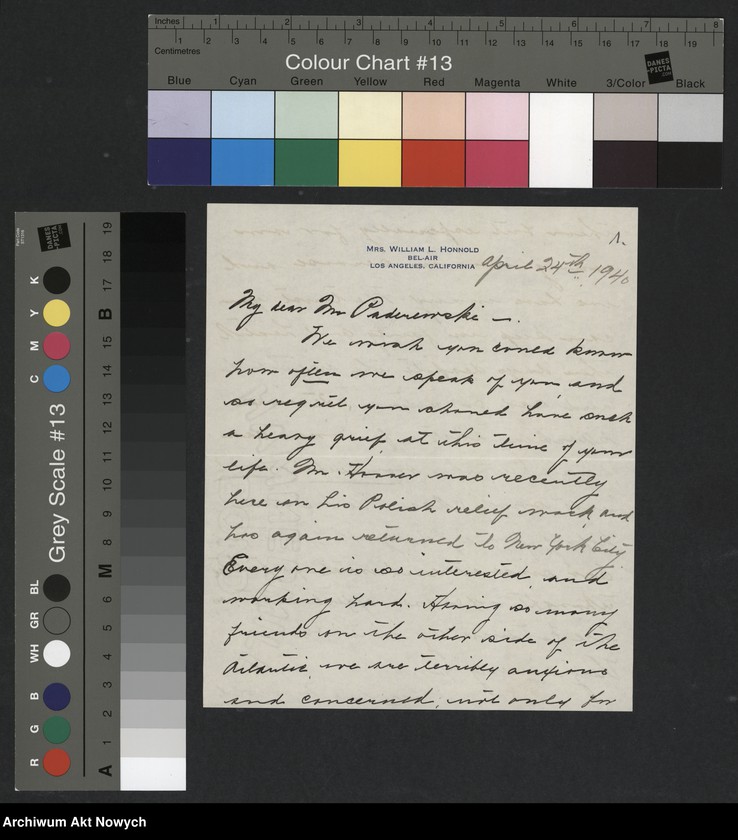 Inches 1 2 3 4 5 6 7 8
Centimetres 1 2 3 4 5 6 7 8 9 10 11 12 13 14 15 16 17 18 19
Colour Chart #13
DANES-PICTA.COM
Blue Cyan Green Yellow Red Magenta White 3/Color Black
DANES-PICTA.COM
Grey Scale #13
R G B WH GR BL C M Y K
A 1 2 3 4 5 6 M 8 9 10 11 12 13 14 15 B 17 18 19
1.
MRS. WILLIAM L. HONNOLD
BEL-AIR
LOS ANGELES, CALIFORNIA
April 24th 1940
My dear Mr Paderewski —.
We wish you could know
how often we speak of you, and
so regret you should have such
a heavy grief at this time of your
life. Mr. Hoover was recently
here on his Polish relief work, and
has again returned to New York City.
Every one is so interested, and
working hard. Having so many
friends on the other side of the
Atlantic, we are terribly anxious
and concerned, not only for
Archiwum Akt Nowych